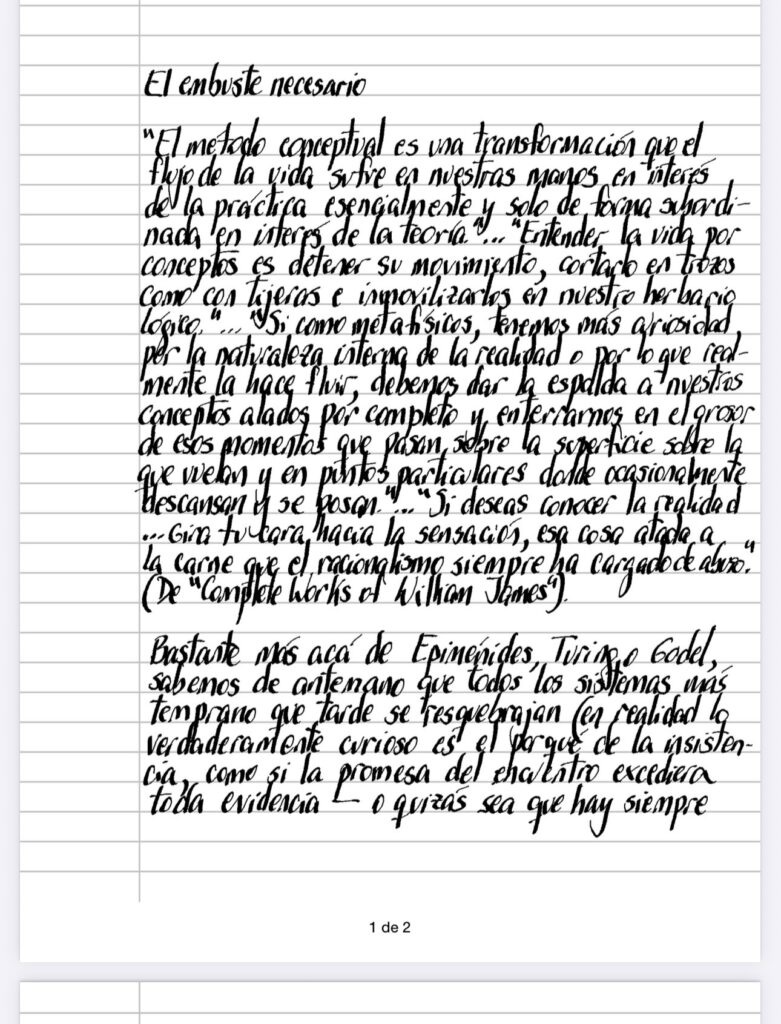 El embuste necesario
"El metodo conceptual es una transformación que el
flujo de la vida sufre en nuestras manos en interés
de la práctica esencialmente y solo de forma subordi-
nada en interés de la teoría."... "Entender la vida por
conceptos es detener su movimiento, cortarlo en trozos
como con tijeras e inmovilizarlos en nuestro herbario
lógico."... "Si como metafísicos, tenemos más curiosidad
por la naturaleza interna de la realidad o por lo que real-
mente la hace fluir, debemos dar la espalda a nuestros
conceptos alados por completo y enterrarnos en el grosor
de esos momentos que pasan sobre la superficie sobre la
que vuelan y en puntos particulares donde ocasionalmente
descansan y se posan."... "Si deseas conocer la realidad
...Gira tu cara hacia la sensación, esa cosa atada a
la carne que el racionalismo siempre ha cargado de abuso."
(De "Complete Works of William James").
Bastante más acá de Epiménides, Turing o Godel,
sabemos de antemano que todos los sistemas más
temprano que tarde se resquebrajan (en realidad lo
verdaderamente curioso es el porqué de la insisten-
cia, como si la promesa del encuentro excediera
toda evidencia — o quizás sea que hay siempre
1 de 2